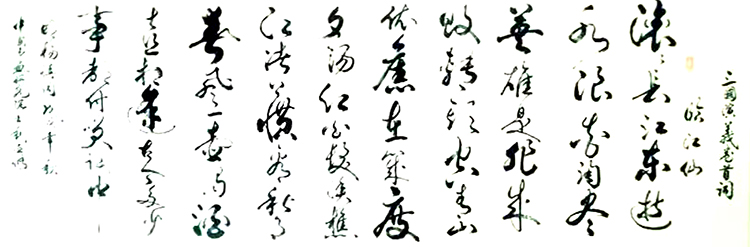 三国演義卷首词
临江仙
滚〻长江东逝
水浪花淘尽
英雄是非成
败转头空青山
依舊在几度
夕阳红白发渔樵
江渚上惯看秋月
春风一壶浊酒
喜相逢古今多少
事都付笑谈中